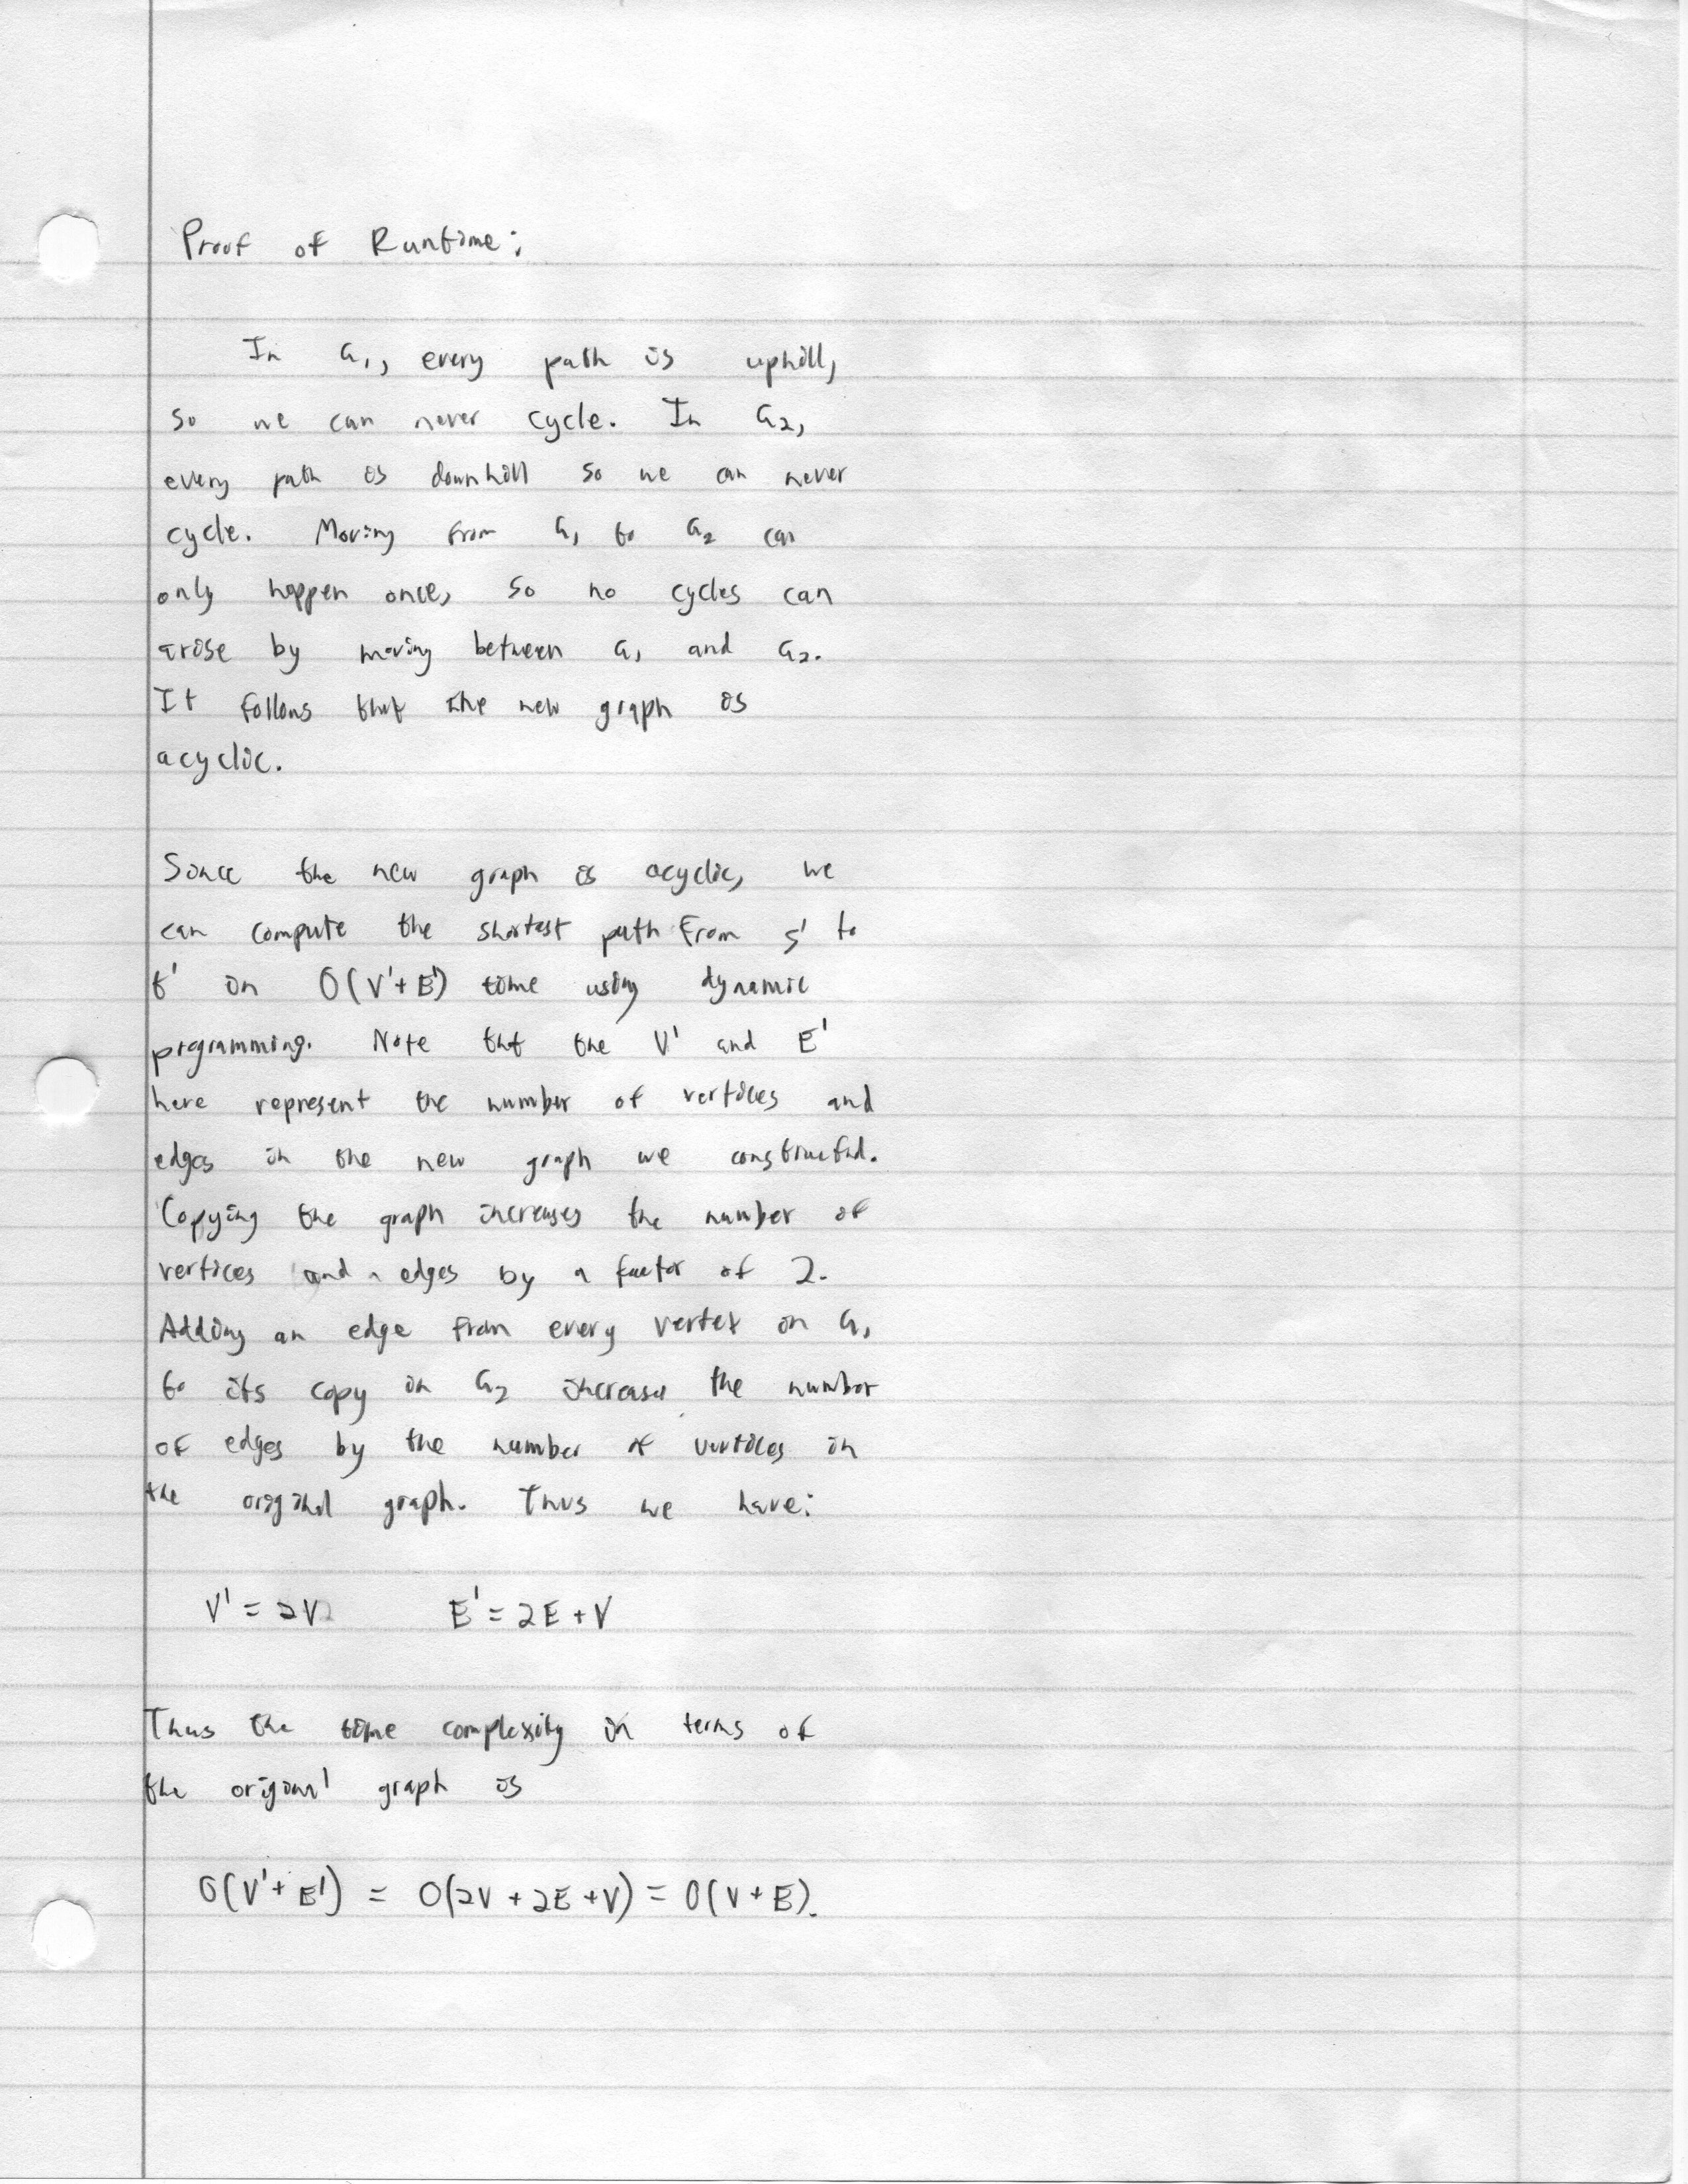 Proof of Runtime:
In G1, every path is uphill,
so we can never cycle. In G2,
every path is downhill so we can never
cycle. Moving from G1 to G2 can
only happen once, so no cycles can
arise by moving between G1 and G2.
It follows that the new graph is
acyclic.
Since the new graph is acyclic, we
can compute the shortest path from s' to
t' in O(V'+E') time using dynamic
programming. Note that the V' and E'
here represent the number of vertices and
edges in the new graph we constructed.
Copying the graph increases the number of
vertices and edges by a factor of 2.
Adding an edge from every vertex in G1
to its copy in G2 increases the number
of edges by the number of vertices in
the original graph. Thus we have:
V' = 2V E' = 2E + V
Thus the time complexity in terms of
the original graph is
O(V' + E') = O(2V + 2E + V) = O(V + E).